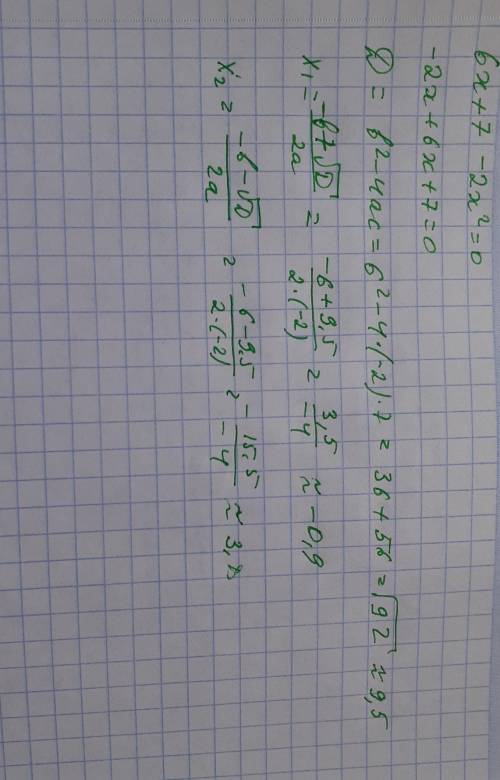 6x+7-2x²=0
-2x+6x+7=0
D = b²-4ac = 6²-4·(-2)·7 = 36+56 = √92 ≈ 9,5
x₁ = (-b+√D)/2a = (-6+9,5)/(2·(-2)) = 3,5/-4 ≈ -0,9
x₂ = (-b-√D)/2a = (-6-9,5)/(2·(-2)) = -15,5/-4 ≈